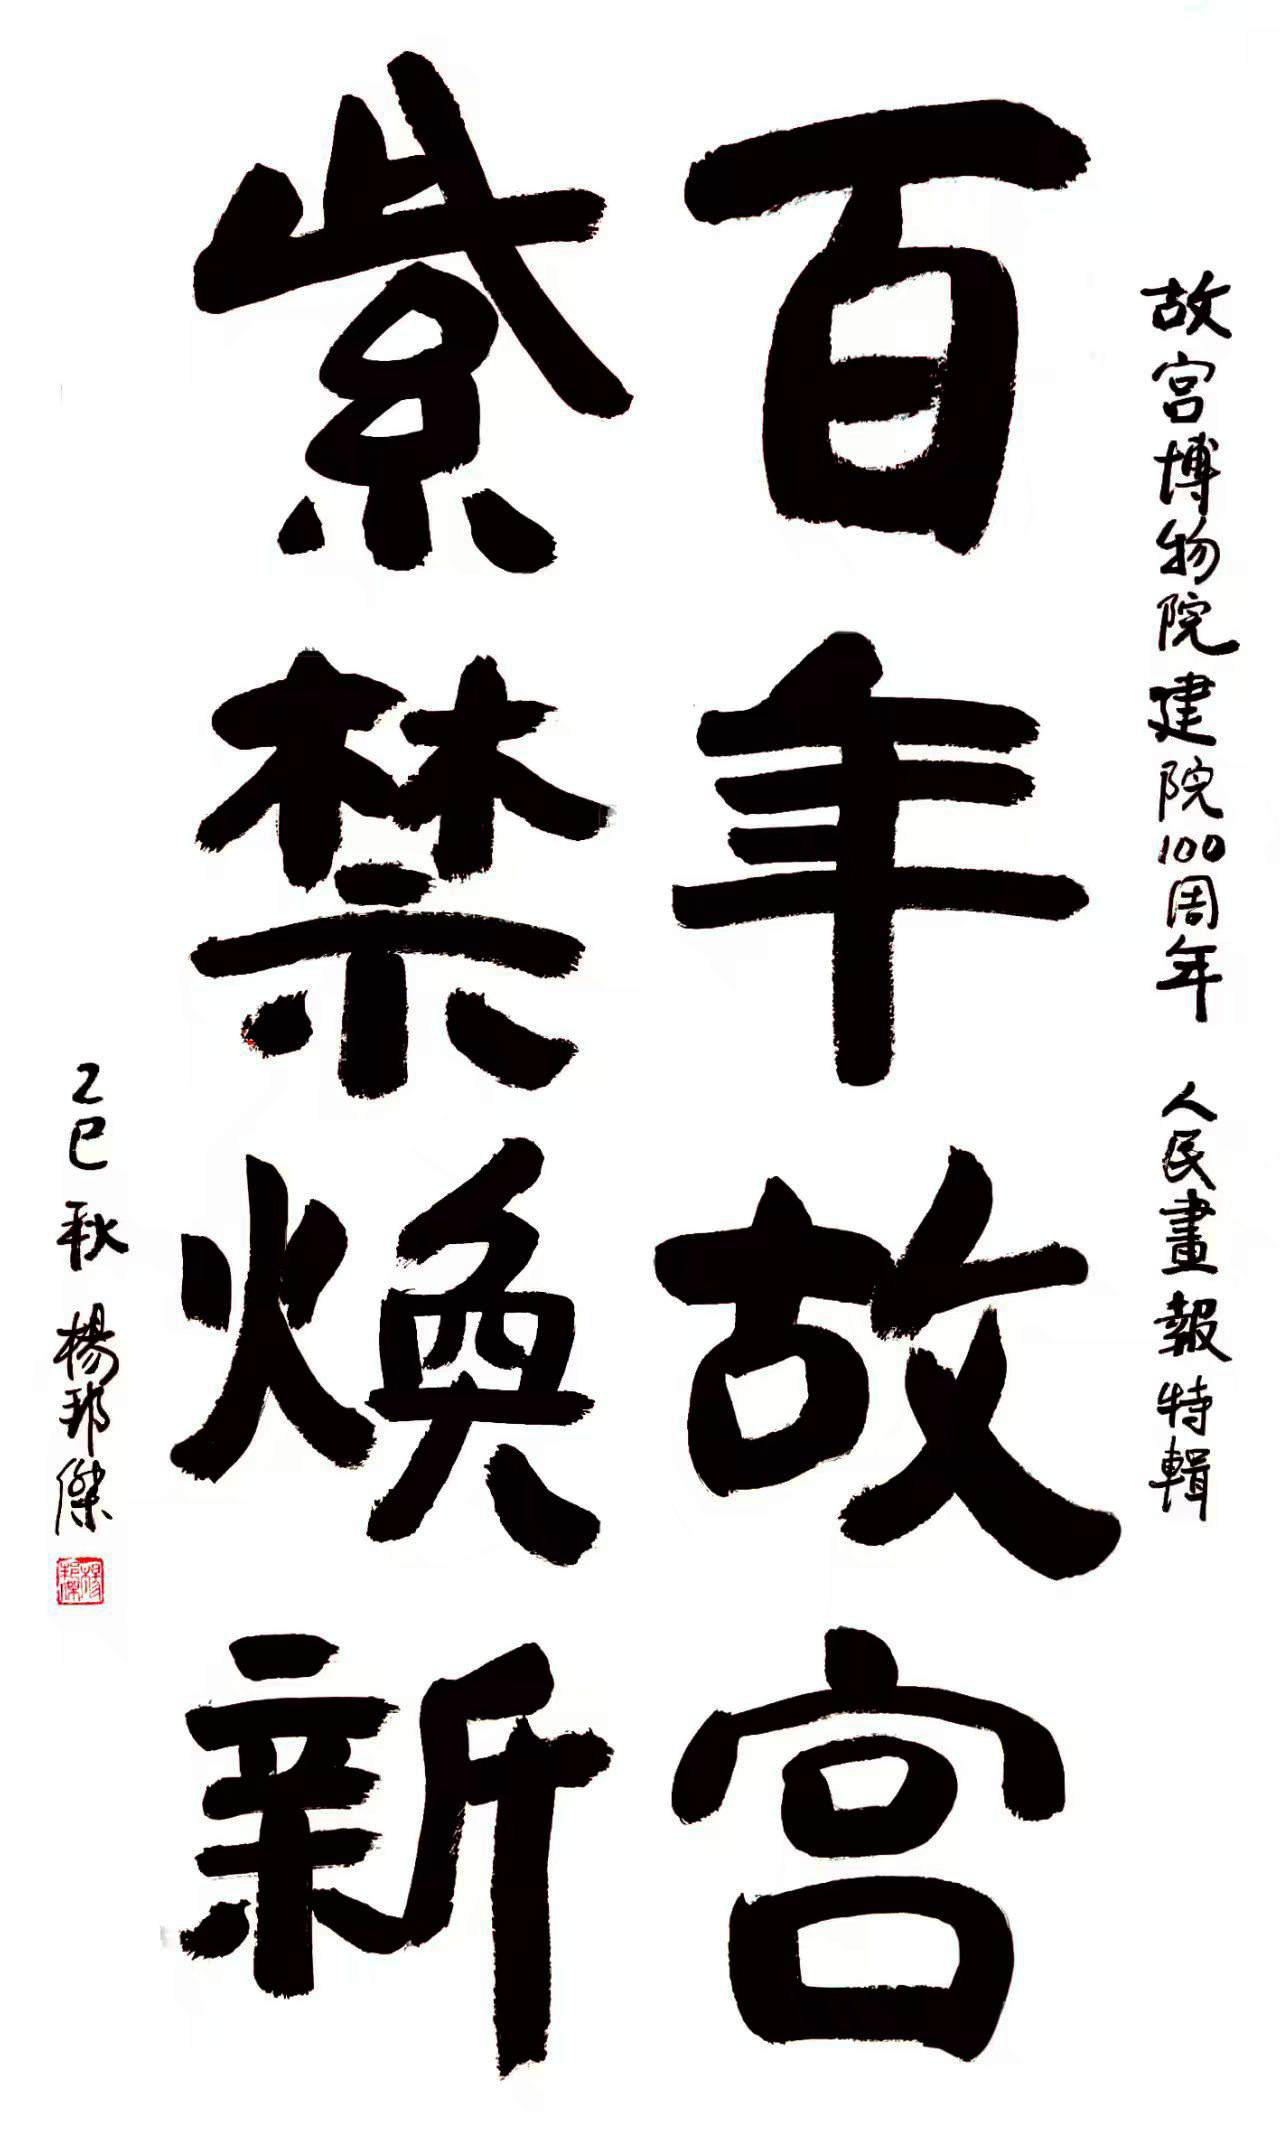 故宮博物院建院100周年 人民畫報特輯
百年故宮
紫禁煥新
乙巳秋 楊邦傑
楊邦傑